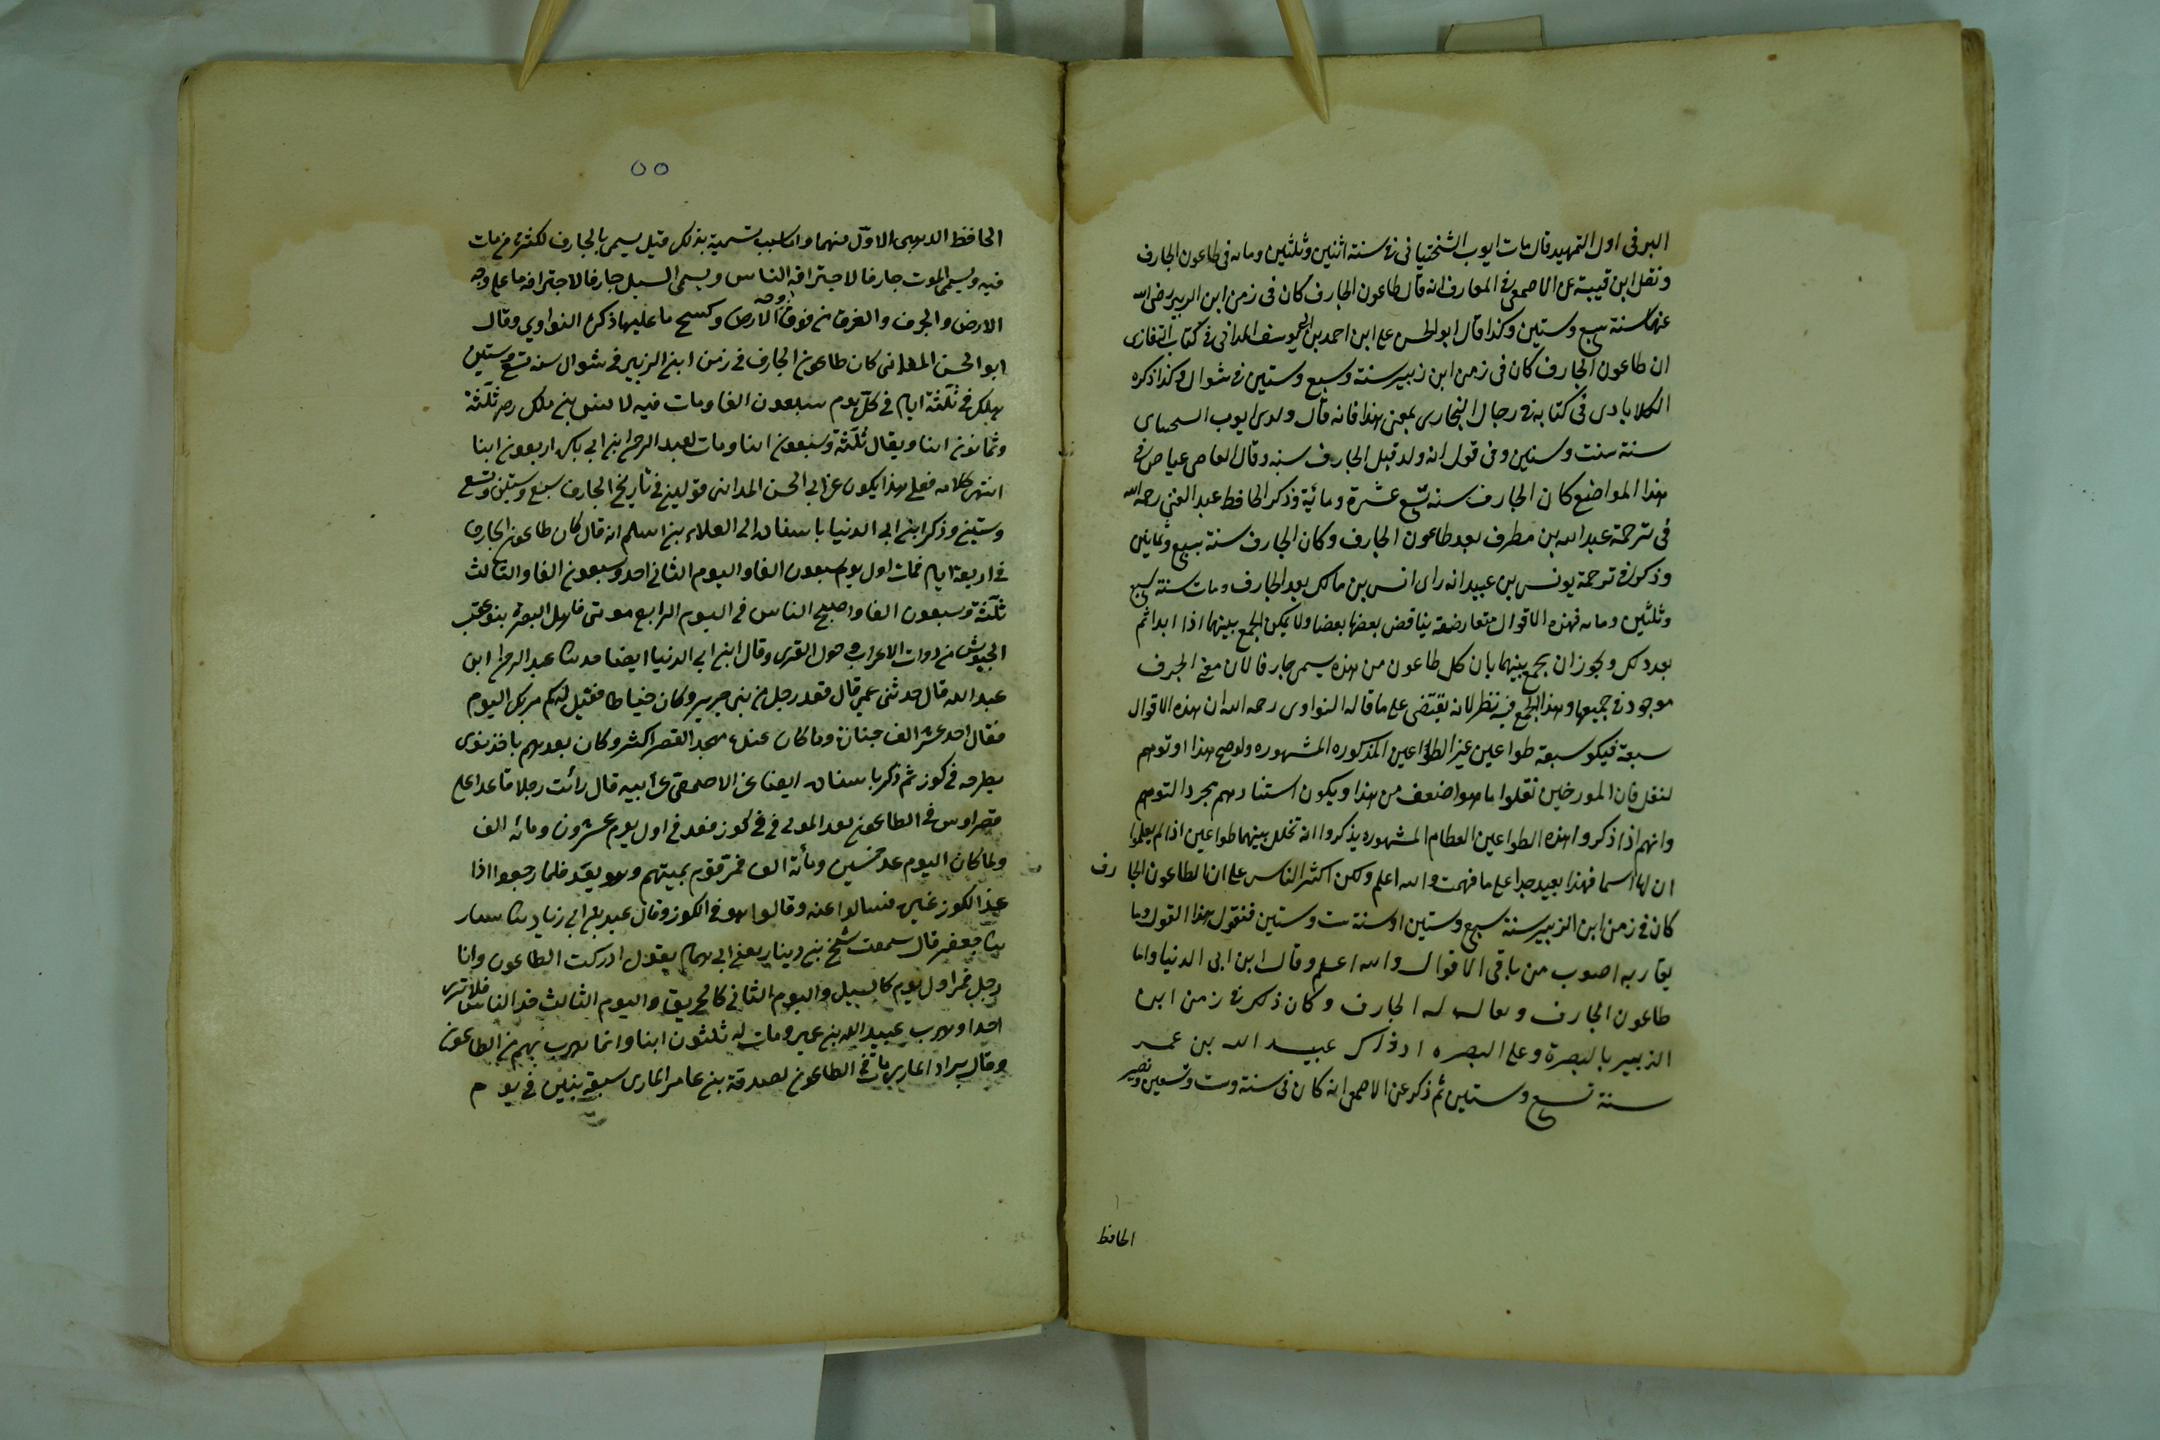 البر فى اول التمهيد قال مات ايوب الشختيانى فى سنة اثنين وثلثين ومايه فى طاعون الجارف
ونقل ابن قيبة عن الاصمعى فى المعارف انه قال طاعون الجارف كان فى زمن ابن الزبير رضى الله
عنهما سنة سبع وستين وكذا قال ابو الحسن على ابن احمد بن ابى سيف المدائنى فى كتاب التغازى
ان طاعون الجارف كان فى زمن ابن زبير سنة وسبع وستين فى شوال وكذا ذكره
الكلابادى فى كتابه فى رجال البخارى بمعنى هذا فانه قال ولد ايوب السحتيانى
سنة ست وستين وفى قول انه ولد قبل الجارف سنه وقال القاضى عياض فى
هذا المواضع كان الجارف سنه تسع عشرة ومائية وذكر الحافظ عبد الغنى رحمه الله
فى ترجمة عبد الله بن مطرف بعد طاعون الجارف وكان الجارف سنة سبع وثمانين
وذكر فى ترجمة يونس بن عبيد انه راى انس بن مالك بعد الجارف ومات سنة سبع
وثلثين ومايه فهذه الاقوال متعارضة يناقض بعضها بعضا ولا يمكن الجمع بينها اذا ابدا ثم
بعد ذلك ويجوز ان يجمع بينهما بان كل طاعون من هذه يسمى جارفا لان معنى الجرف
موجود فى جميعها وهذا الجمع فيه نظر لانه يقتضى على ما قاله النواوى رحمه الله ان هذه الاقوال
سبعة فيكو سبعة طواعين غير الطواعين المذكوره المشهوره ولو صح هذا او توهم
لنقل فان المورخين نقلوا ما هو اضعف من هذا ويكون استنادهم بمجرد التوهم
وانهم اذا ذكروا هذه الطواعين العظام المشهوره يذكروا انه تخلل بينهما طواعين اذا لم يعلموا
ان لها اسما فهذا بعيد جدا على ما فهمت والله اعلم ولكن اكثر الناس على ان الطاعون الجا رف
كان فى زمن ابن الزبير سنة سبع وستين او سنة ست وستين فنقول هذا القول وما
يقاربه اصوب من باقى الاقوال والله اعلم وقال ابن ابى الدنيا واما
طاعون الجارف ويقال له الجارف وكان ذلك فى زمن ابن
الزبير بالبصرة وعلى البصره اذ ذاك عبيد الله بن عمر
سنة تسع وستين ثم ذكر عن الاصمعى انه كان فى سنة وست وتسعين
الحافظ
٥٥
الحافظ الاول منهما واما سبب تسميته بذلك فقيل يسمى بالجارف لكثرة من مات
فيه ويسمى الموت جارفا لاجترافه الناس ويسمى السيل جارفا لاجترافه ما على وجه
الارض والجرف والغرفان فوق وجه الارض وكسح ما عليها ذكره النواوي وقال
ابو الحسن المدائنى كان طاعون الجارف فى زمن ابن الزبير فى شوال سنه تسع وستين
يهلك فى ثلثة ايام فى كل يوم سبعون الفا ومات فيه لانس بن ملك رضه ثلثة
وثمانون ابنا ويقال ثلثة وسبعون ابنا ومات لعبد الرحمن ابن ابى بكر اربعون ابنا
انتهى كلامه فعلى هذا يكون عن ابى الحسن المدائنى قولين فى تاريخ الجارف سبع وستين وتسع
وستين وذكر ابن ابى الدنيا باسناده الى العلاء بن اسلم انه قال كان طاعون الجارف
فى اربعة ايام فمات اول يوم سبعون الفا واليوم الثانى احد وسبعون الفا والثالث
ثلثة وسبعون الفا واصبح الناس فى اليوم الرابع موتى
حول القرى وقال ابن ابى الدنيا ايضا حدثنا عبد الرحمن ابن
عبد الله قال حدثنى عمى قال فقد رجل من بنى جرير وكان خياطا فقيل لهم مر بك اليوم
فقال احد عشر الف جنازة وما كان عند مسجد القصر اكثر وكان بعدهم ياخذ نوى
يطرحه فى كوز ثم ذكر باسناده ايضا عن الاصمعى عن ابيه قال رائت رجلا قاعدا على
قصر اوس فى الطاعون يعد الموتى فى كوز فعد فى اول يوم عشرون ومائه الف
ولما كان اليوم عد خمسين ومأئة الف فمر قوم بميتهم وهو يعد فلما رجعوا اذا
عند الكوز غيره فسالوا عنه وقالوا هو فى الكوز وقال عبيد بن ابى زياد حدثنا سيار
حدثنا جعفر قال سمعت شيخ بن دينار يعنى ابى همام يقول ادركت الطاعون وانا
رجل فمر اول يوم كالسيل واليوم الثانى كالحريق واليوم الثالث فقد الناس فلا ترى
احدا وهرب عبيد الله بن عمير ومات له ثلثون ابنا وانما هرب بهم من الطاعون
وقال مات فى الطاعون لصدقة بن عامر المازى سبعة بنين فى يو م